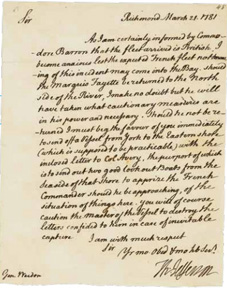 Richmond March 23. 1781
Sir
As I am certainly informed by Commo-
dore Barron that the fleet arrived is British, I
become anxious lest the expected French fleet not know-
ing of this incident may come into the Bay. should
the Marquis Fayette be returned to the North
side of the River, I make no doubt but he will
have taken what cautionary measures are
in his power and necessary. Should he not be re-
turned I must beg the favor of you immediately
to send off a Vessel from York to the Eastern shore
(which is supposed to be practicable) with the
inclosed Letter to Col. Avery, the purport of which
is to send out two good Look out Boats from the
Sea side of that Shore to apprize the French
Commander should he be approaching, of the
situation of things here. You will of course
caution the master of the Vessel to destroy the
letters confided to him in case of inevitable
capture.
I am with much respect
Sir
Yr mo Obed & mo hd Servt
Th: Jefferson